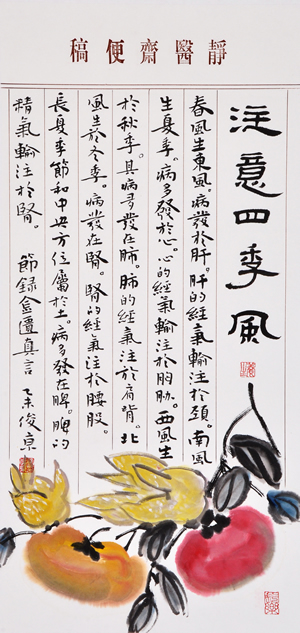 靜醫齋便稿
注意四季風
春風生東風。病發於肝。肝的經氣輸注於頸。南風
生夏季。病多發於心。心的經氣輸注於胸肋。西風生
於秋季。其病多發在肺。肺的經氣注於肩背。北
風生於冬季。病發在腎。腎的經氣注於腰股。
長夏季節和中央方位屬於土。病多發在脾。脾的
精氣輸注於腎。節錄金匱真言 俊京